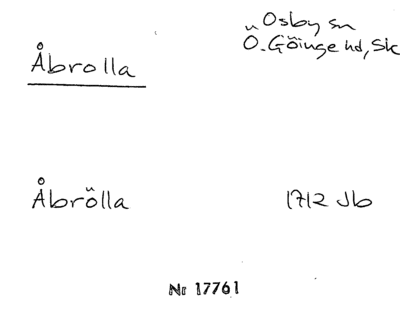 Åbrolla
Osby sn
Ö. Göinge hd, Sk
Åbrölla
1712 Jb
Nr 17761